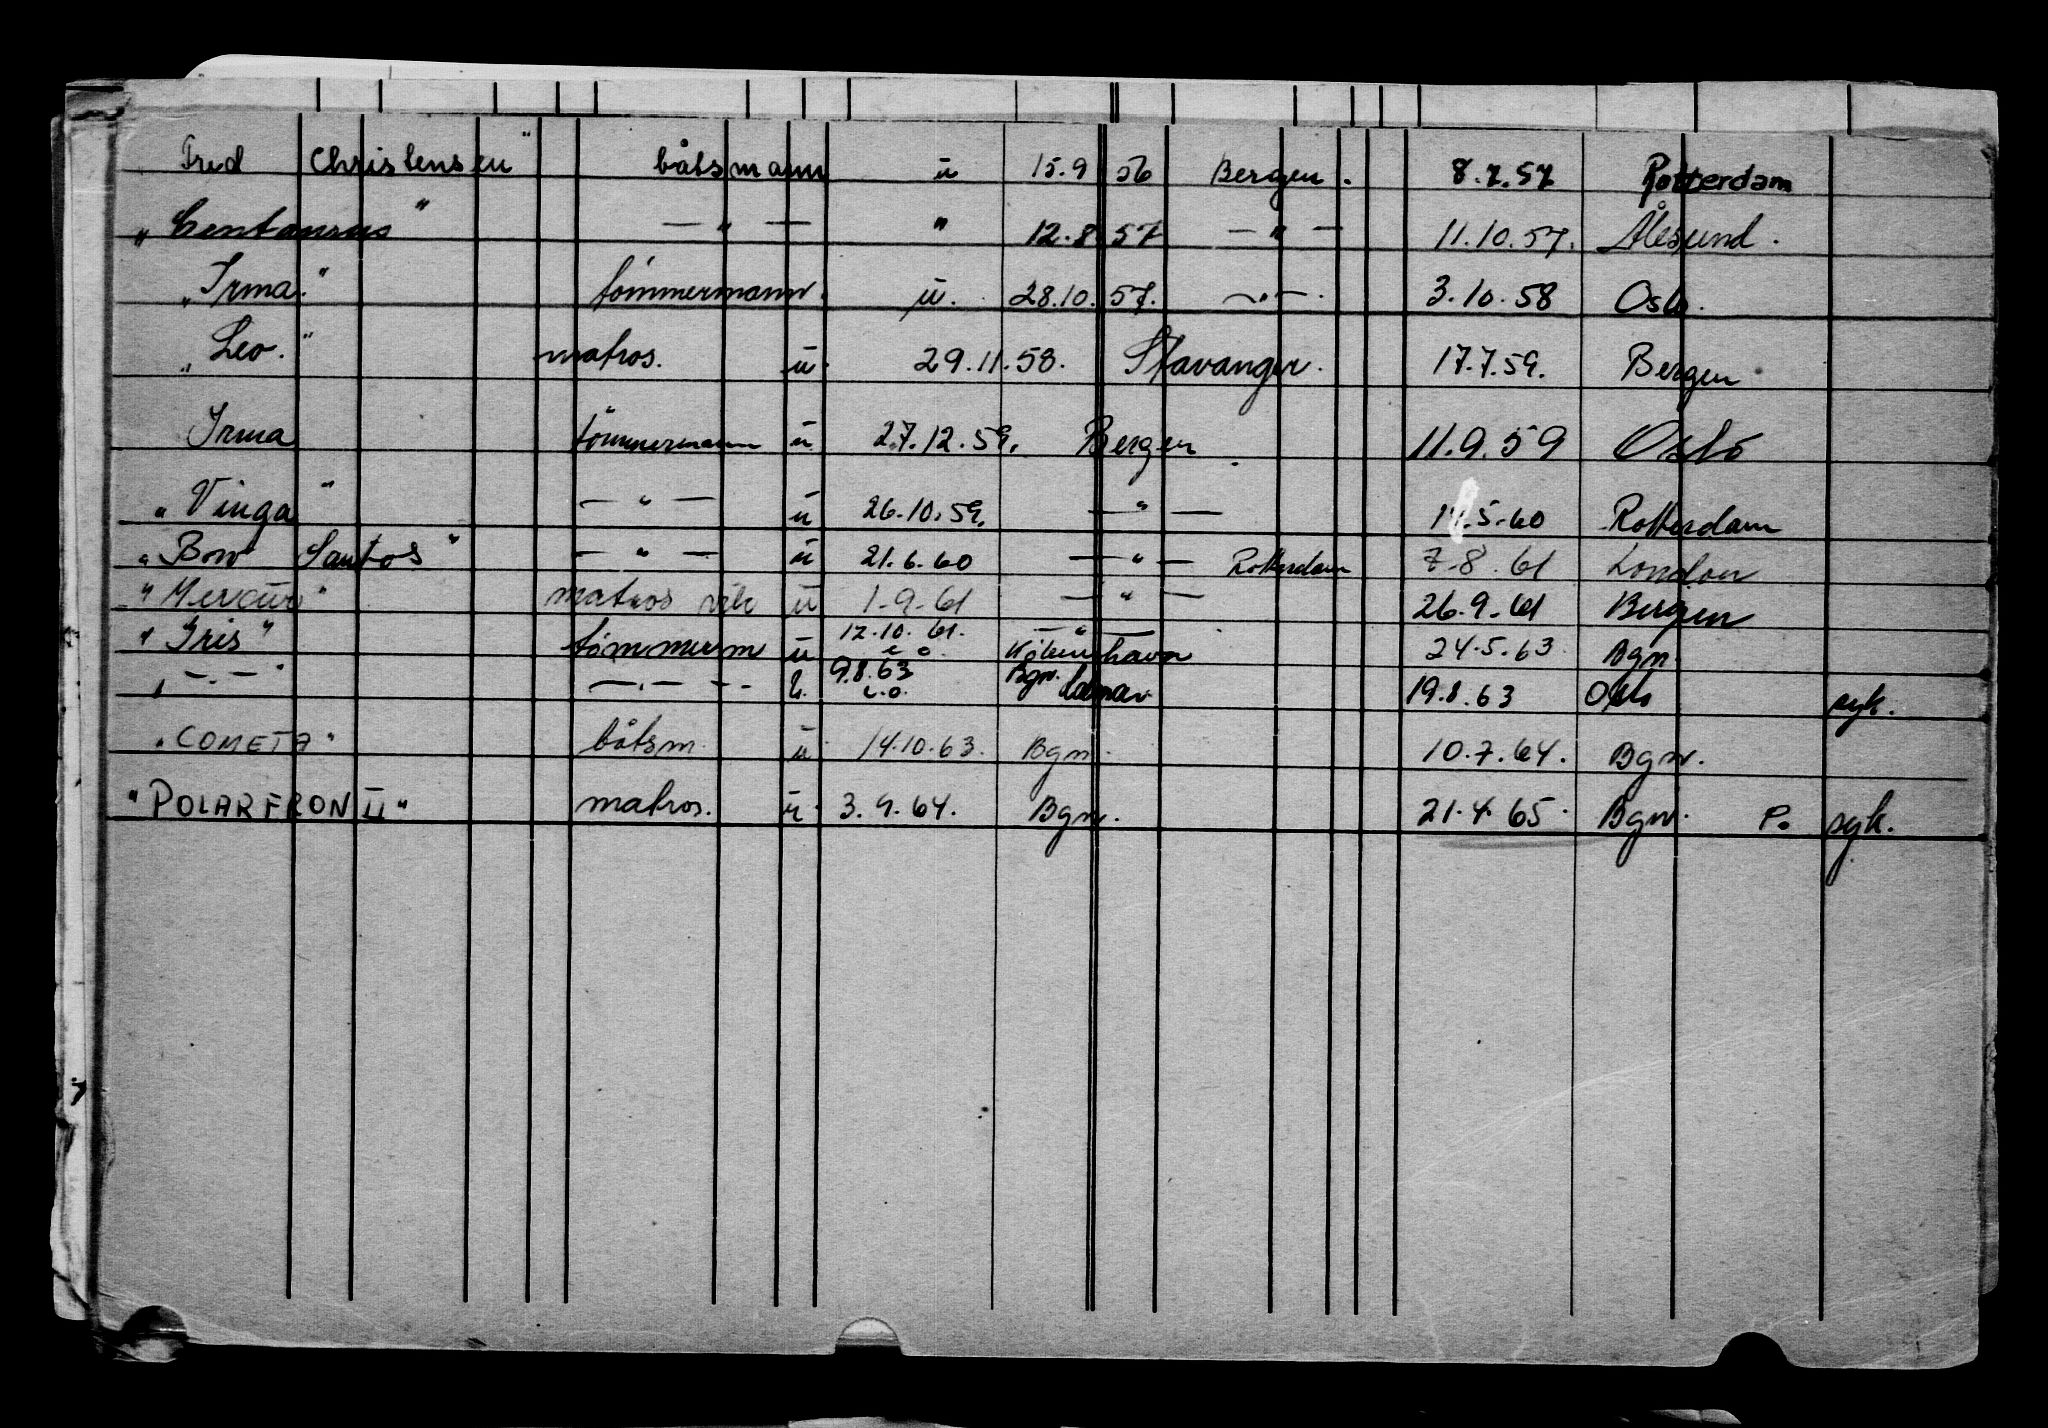 Fred Christensen" båtsmann u 15.9 56 Bergen. 8.7.57 Rotterdam
"Centaurus" — " — " 12.8 57 — " — 11.10.57. Ålesund.
"Irma." tömmermann. u. 28.10.57. — " —. 3.10.58 Oslo.
"Leo." matros. u. 29.11.58. Stavanger. 17.7.59. Bergen
Irma tömmermann u. 27.12.59. Bergen 11.9.59 Oslo
"Vinga" — " — u 26.10.59. — " — 5.60 Rotterdam
"Bow Santos" — " — u 21.6.60 — " — Rotterdam 7.8.61 London
"Mercur" matros u 1.9.61 — " — 26.9.61 Bergen
"Iris" tömmerm u 12.10.61. — " — Köbenhavn 24.5.63 Bgn
" —.— " —.— — 9.8.63 Bgn. 19.8.63 Oslo syk.
"COMETA" båtsm. u. 14.10.63. Bgn. 10.7.64. Bgn.
"POLARFRON II" matros. u. 3.9.64. Bgn. 21.4.65. Bgn. P. syk.